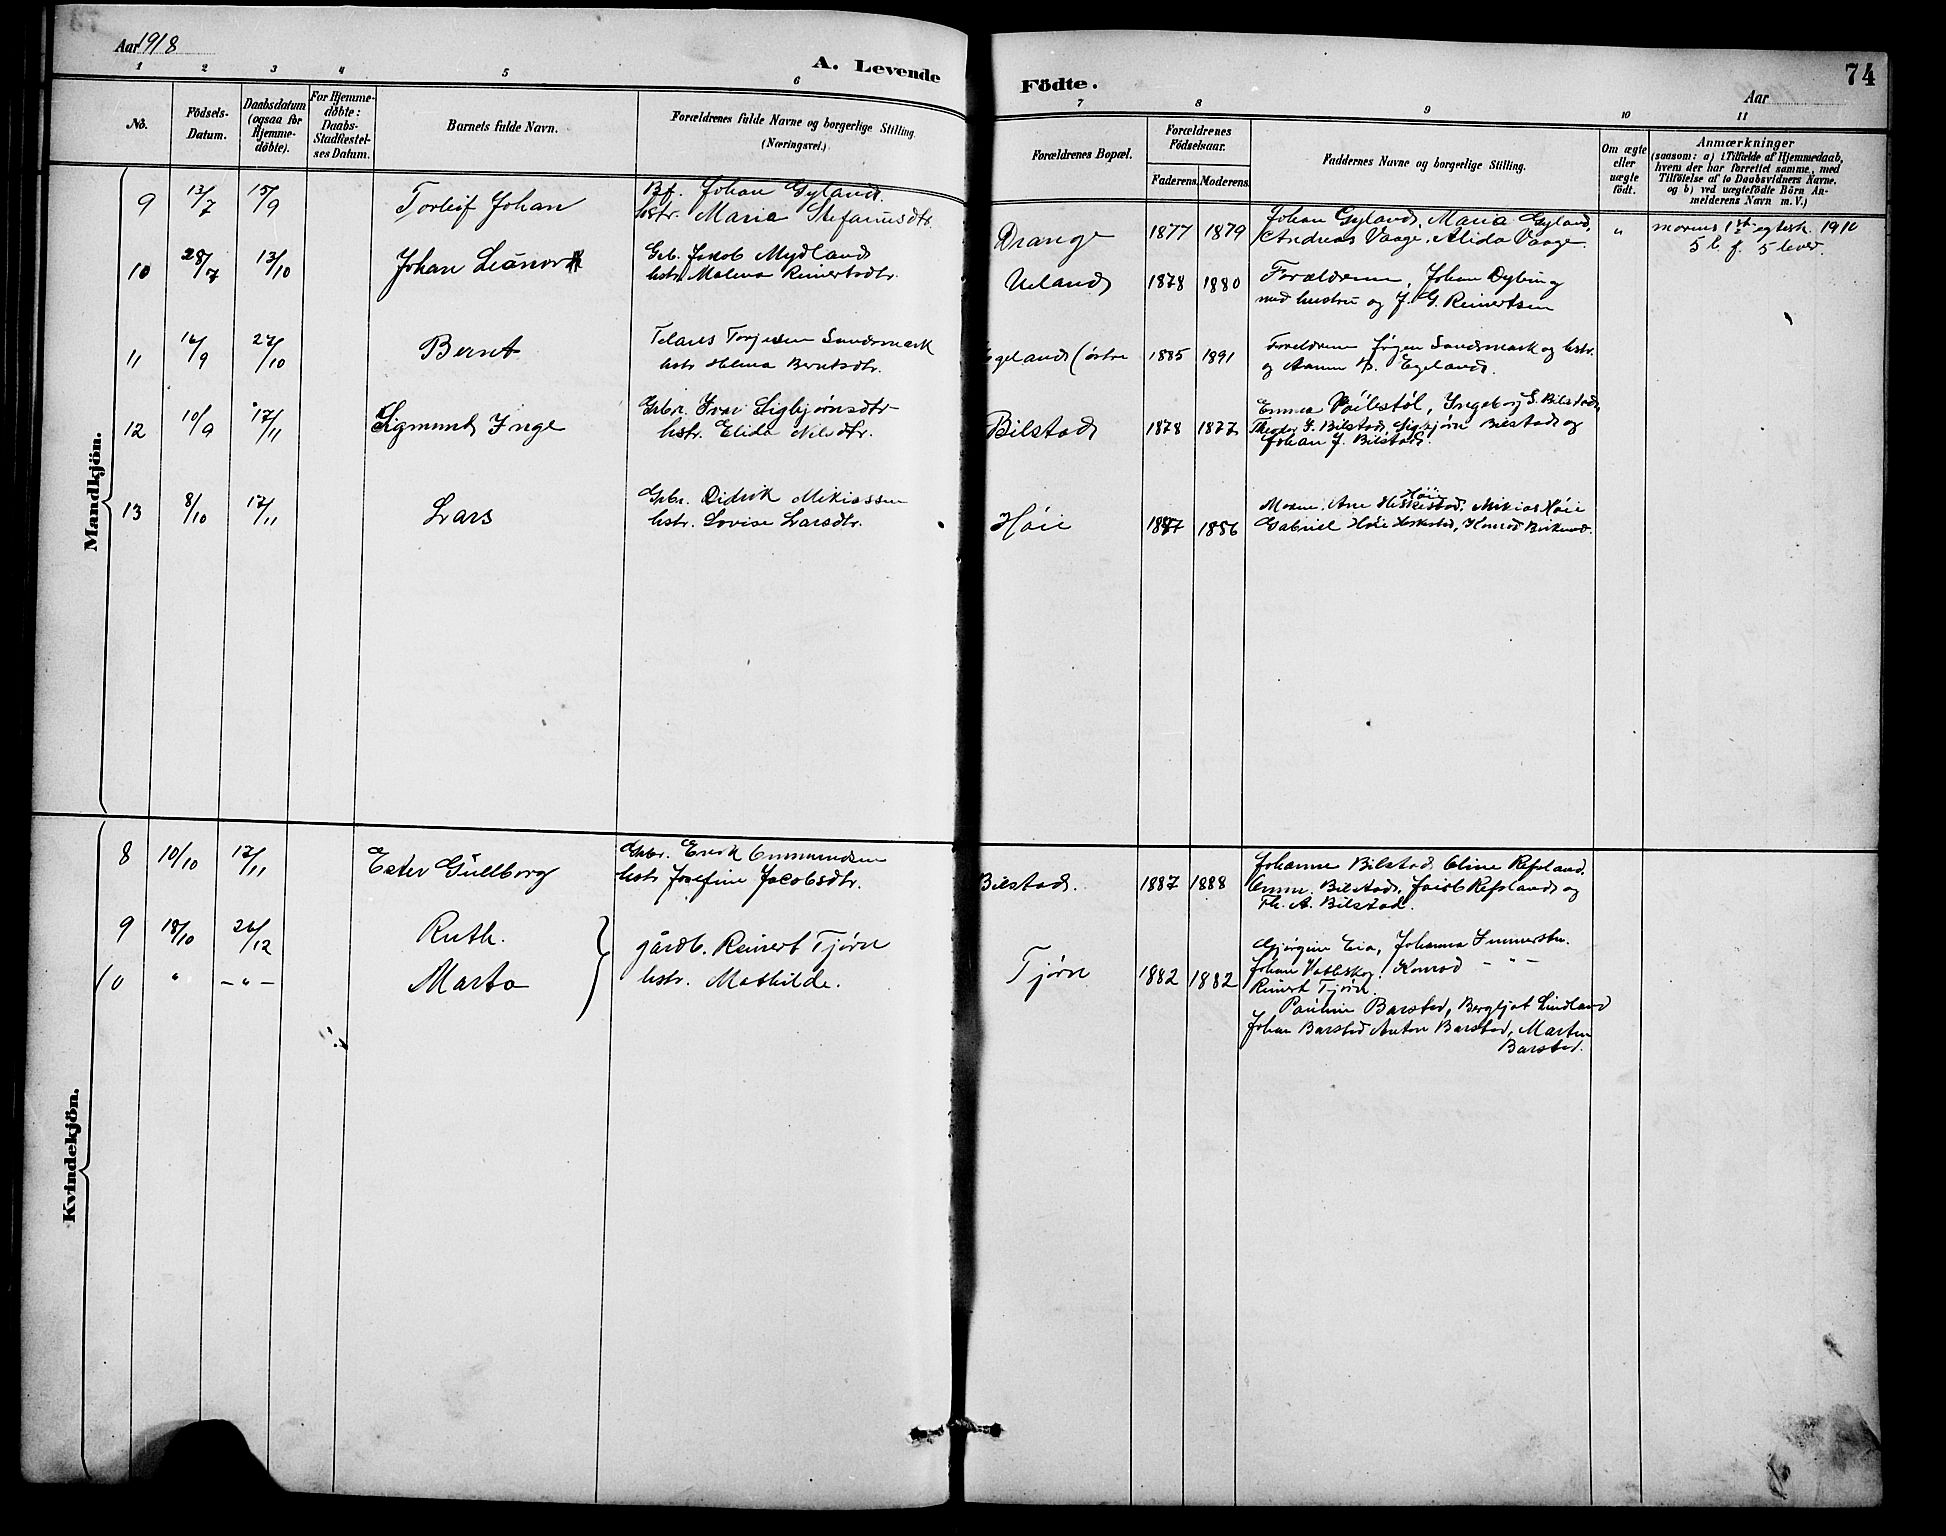 Aar 1918
A. Levende Födte.
74
Aar
1 2 3 4 5 6 7 8 9 10 11
No.
Födsels-Datum.
Daabsdatum (ogsaa for Hjemme-döbte).
For Hjemme-döbte: Daabs-Stadfæstel-ses Datum.
Barnets fulde Navn.
Forældrenes fulde Navne og borgerlige Stilling (Næringsvei.)
Forældrenes Bopæl.
Forældrenes Födselsaar.
Faderens. Moderens.
Faddernes Navne og borgerlige Stilling.
Om ægte eller uægte födt.
Anmærkninger
(saasom: a) i Tilfælde af Hjemmedaab,
hvem der har forrettet samme, med
Tilföielse af to Daabsvidners Navne.
og b) ved uægtefödte Börn An-
melderens Navn m. V.)
Mandkjön.
9 13/7 15/9 Torleif Johan
Bf. Johan Gyland
hstr. Maria Stefanusdtr.
Drange 1877 1879
Johan Gyland, Maria Gyland,
Andreas Vaage, Alida Vaage.
"
morens 1ste egtesk. 1910
5 l. f. 5 lever.
10 28/7 13/10 Johan Leanor
Gb. Jakob Mydland
hstr. Malena Reinertsdtr.
Ueland 1878 1880
Forældrene, Johan Dybing
med hustru og J. G. Reinertsen
11 16/9 27/10 Bernt
Telaus Torjesen Sandsmark
hstr. Helena Berntsdtr.
Egeland (østre 1885 1891
Forældrene Jørgen Sandsmark og hstr.
og Aanen B. Egeland.
12 10/9 17/11 Sigmund Inge
Gbr. Ivar Sigbjørnsdtr
hstr. Elida Nilsdtr.
Bilstad 1878 1877
Emma Røilestøl, Ingeborg S. Bilstad,
Theodor I. Bilstad, Sigbjørn Bilstad og
Johan J. Bilstad.
13 8/10 17/11 Lars
Gbr. Didrik Mikiassen
hstr. Lovise Larsdtr.
Høie 1887 1886
Moren. Ane Høie Heskestad, Mikias Høie
Gabriel Høie Heskestad, Konrad
Kvindekjön.
8 10/10 17/11 Ester Gullborg
Gbr. Enok Ommundsen
hstr Josefine Jacobsdtr.
Bilstad. 1887 1888
Johanne Bilstad, Oline Refsland,
Omm. Bilstad, Jakob Refsland og
Th. A. Bilstad.
9 18/10 26/12 Ruth.
10 " -"- Marta
gårdb. Reinert Tjørn
hstr. Mathilde.
Tjørn 1882 1882
Gjørgine Eia, Johanna
Johan Vatleskog. Konrad -"-
Reinert Tjørn.
Pauline Barstad, Bergljot Lindland
Johan Barstad Anton Barstad, Marten
Barstad.